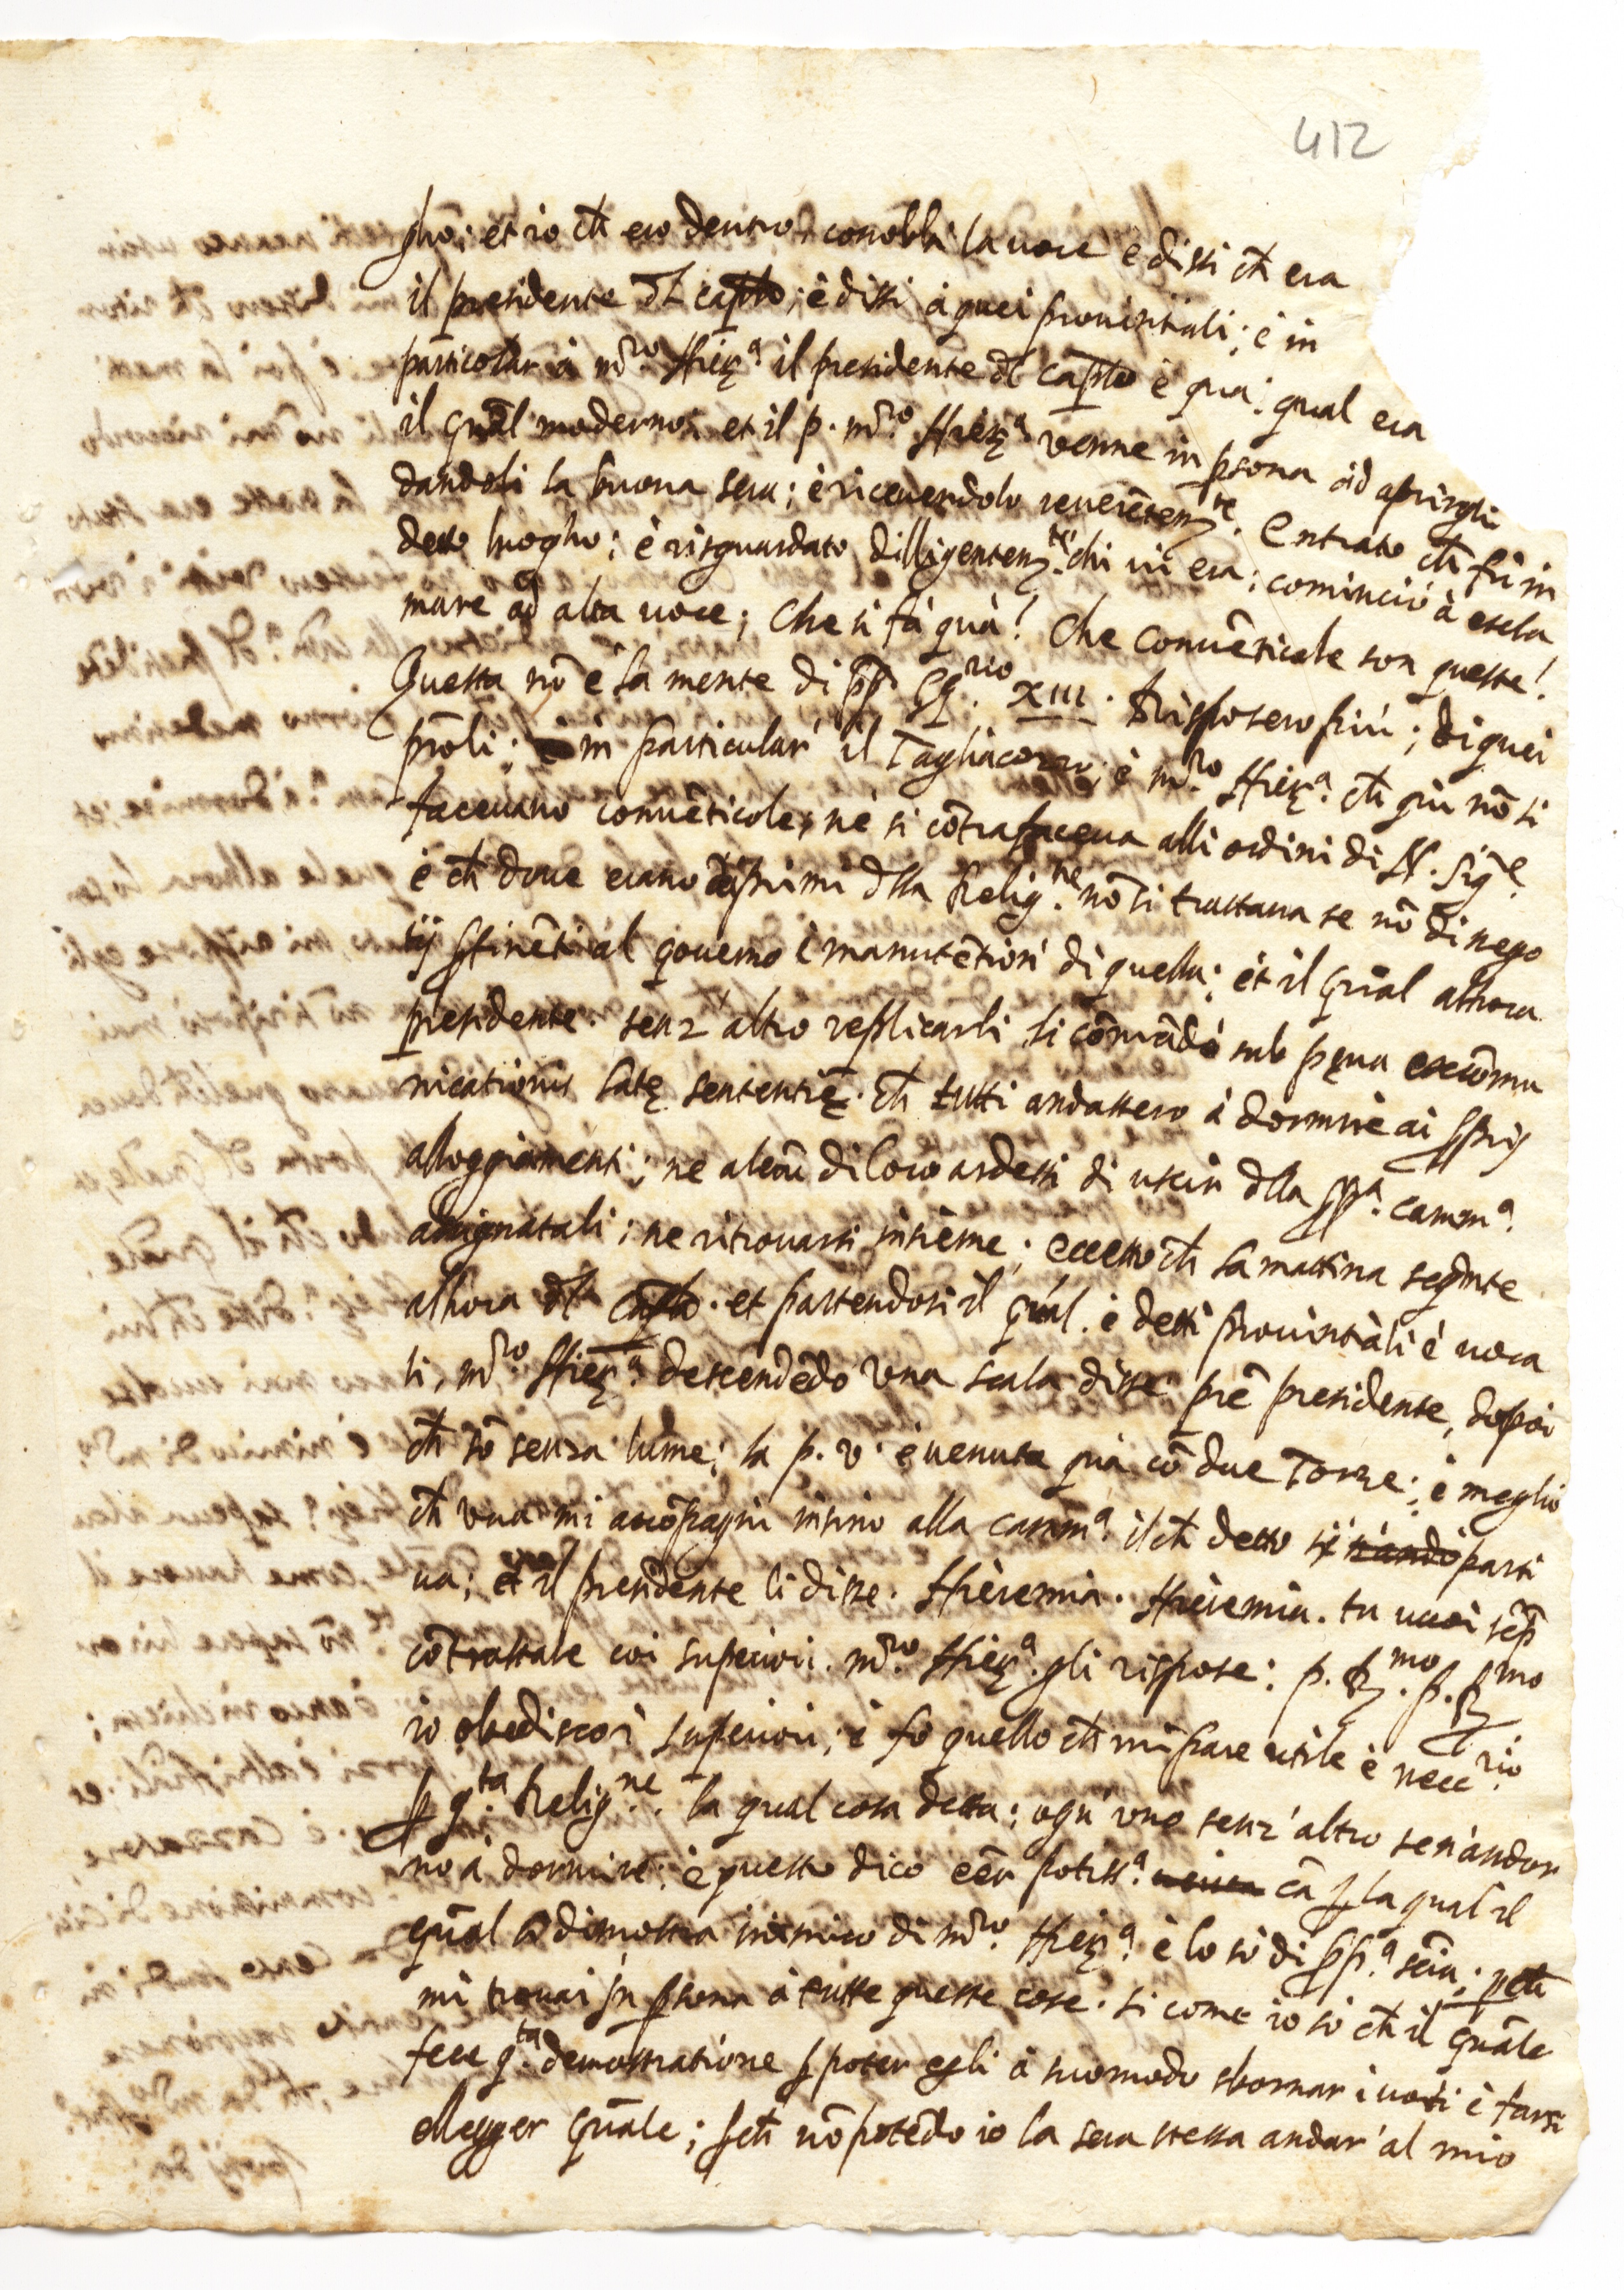 412
gho; et io ch̄ ero dentro, conobbi la uoce è dissi ch̄ era
il presidente d̄l cap̄lo; è dissi à quei prouintiali; è in
particolar à m̄ro. Hier.ª il presidente d̄l cap̄lo è qua: qual era
il gn̄al moderno; et il p. m̄ro. Hier.ª venne in p̱sona ad aprirgli
dandoli la buona sera; è riceuendolo reuerētem.te. Entrato ch̄ fù in
detto luogho; è risguardato dilligentem.te chi ui era; cominciò à escla
mare ad alta uoce; Che si fà quà! Che conuēticole son queste!
Questa nō è la mente di pp̄ Gg.rio XIII. Risposero più; di quei
pr̄oli; in particular il Tagliacozzo; è m̄ro. Hier.ª ch̄ più nō si
faceuano conuēticole, nè si cōtrafaceua alli ordini di N. Sig.e
è ch̄ doue erano i primi d̄lla Relig.ne nō si trattaua se nō di nego
tij ꝑtinēti al gouerno è manutētion' di quella; et il gn̄al allhora
presidente. senz' altro replicarli li cōmādò sub pęna excōmu
nicationis latę sententię. ch̄ tutti andassero à dormire ai ꝓprij
alloggiamenti; ne alcū di loro ardessi di uscir d̄lla ꝓpª. camm.ª
assignatali; ne ritrouarsi insieme; eccetto ch̄ la mattina seg̃nte
alhora d̄l cap̄lo. et partendosi il gn̄al. è detti prouintiali è uoca
li, m̄ro. Hier.ª descendēdo vna scala disse prē presidente, dopoi
ch̄ sō senza lume; la p. v. è uenuta quà cō due Torze; è meglio
ch̄ vna mi accōpagni insino alla camm.ª il ch̄ detto si n'andò parti
ua; et il presidente li disse. Hieremia. Hieremia. tu uuoi sēp̄
cōtrastare coi superiori. m̄ro. Hier.ª gli rispose: p. R.mo p. R.mo
io obedisco i superiori; è fo quello ch̄ mi pare utile è necc.rio
ꝑ q.ta Relig.ne. la qual cosa detta; ogn' vno senz' altro sen'andor
no à dormire; è questo dico eēr potiss.ª cā ꝑ la qual il
gn̄al si dimostra inimico di m̄ro. Hier.ª è lo sò di ꝓp.ª sciā; ꝑch̄
mi trouai in ꝑsona à tutte queste cose. si come io sò ch̄ il gn̄ale
fece q.ta demostratione ꝑ poter egli à suo modo sbornar i uoti è farsi
elegger gn̄ale; ꝑch̄ nō potēdo io la sera stessa andar' al mio